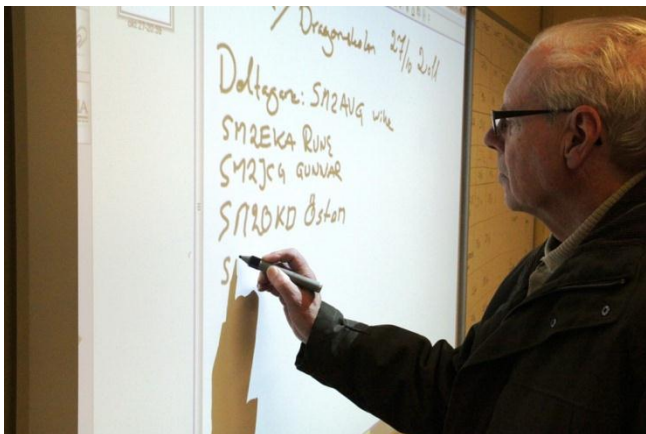 Dragonskolan 27/10 2011
Deltagare: SM2AUG wike
SM2EKA RUNE
SM2JCG GUNNAR
SM2OKD Östen
S